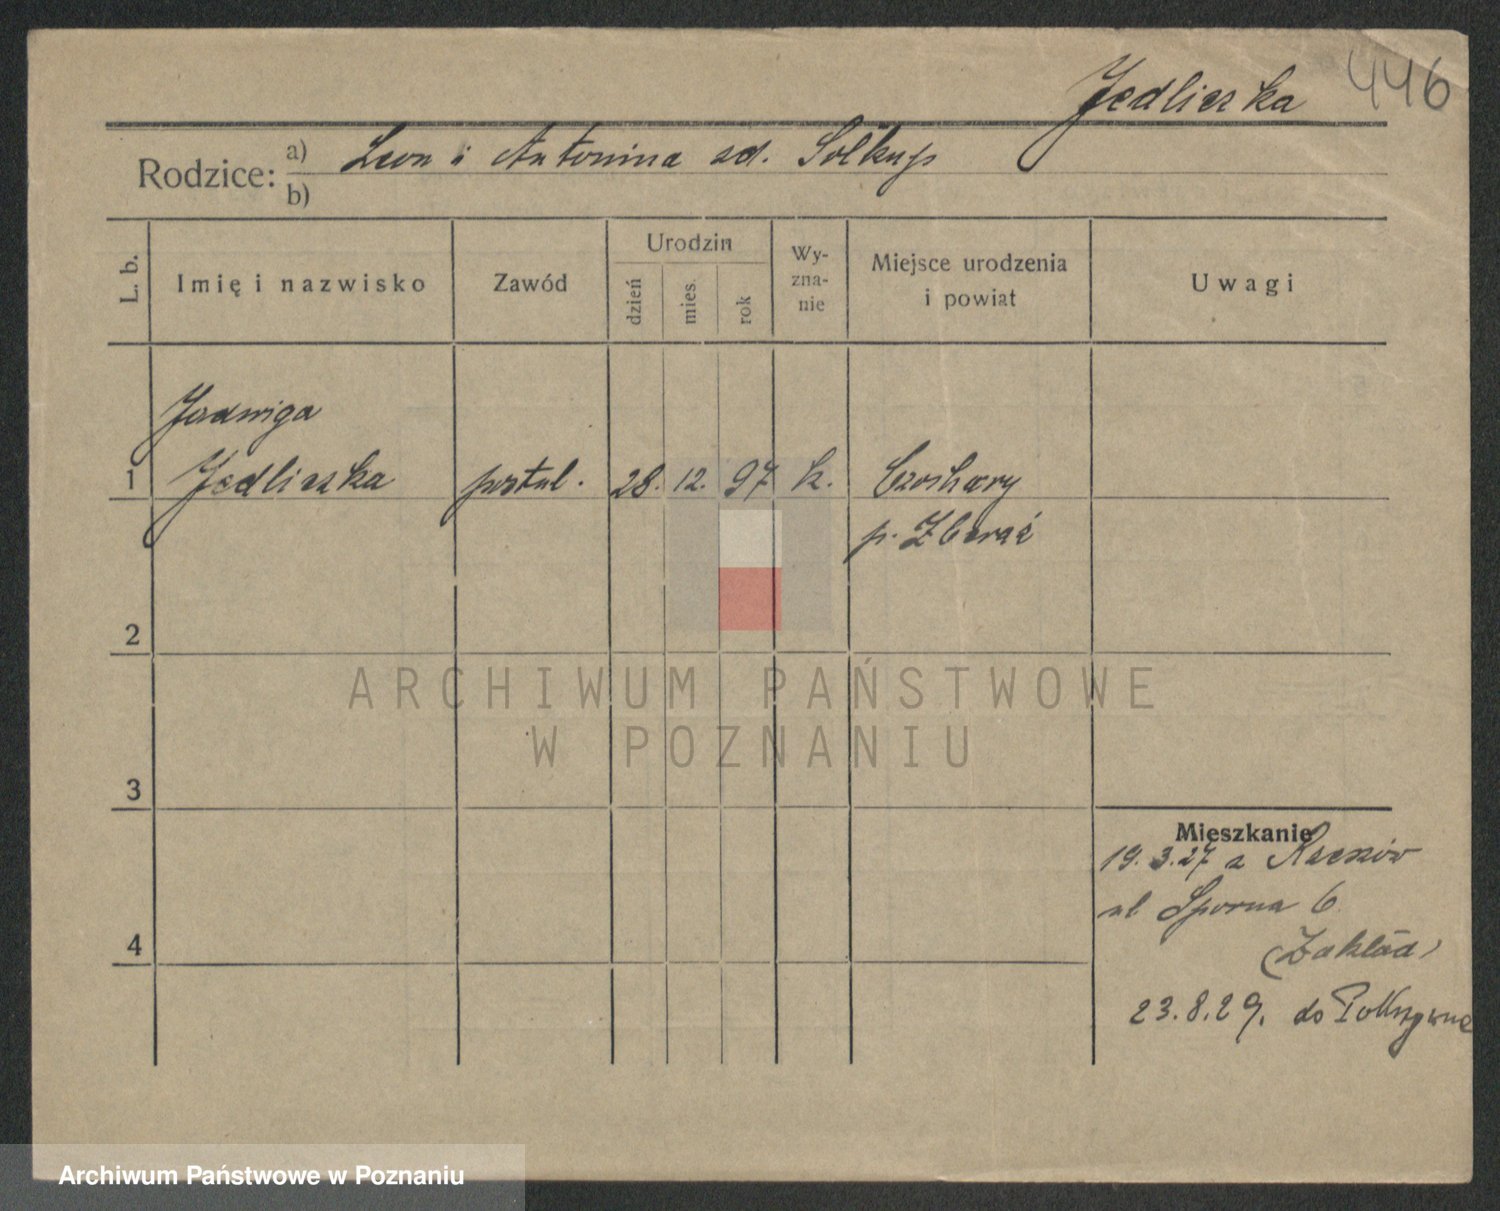 446
Jedliczka
Rodzice: a) Leon i Antonina zd. Solkup
b)
L. b.
Imię i nazwisko
Zawód
Urodzin
dzień
mies.
rok
Wy-
zna-
nie
Miejsce urodzenia
i powiat
Uwagi
Jadwiga
1 Jedliczka postul. 28. 12. 97 k.
p. Zbaraż
2
3
4
Mieszkanie
19.3.27 z
ul Sporna 6
(Zakład)
23.8.29. do
ARCHIWUM PAŃSTWOWE
W POZNANIU
Archiwum Państwowe w Poznaniu